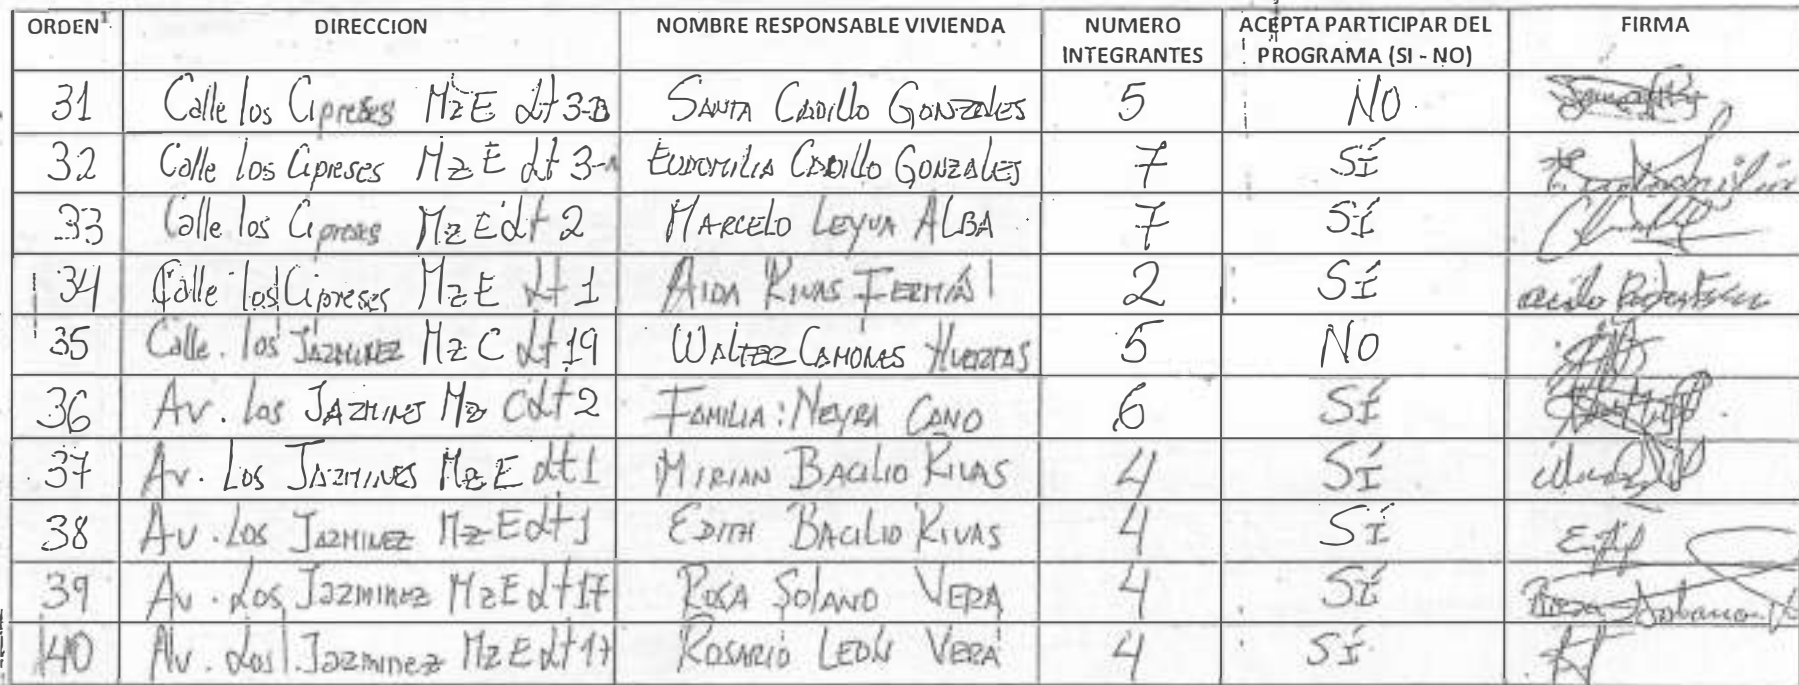 ORDEN DIRECCION NOMBRE RESPONSABLE VIVIENDA NUMERO INTEGRANTES ACEPTA PARTICIPAR DEL PROGRAMA (SI - NO) FIRMA
31 Calle los Cipreses Mz E Lt 3-B SANTA CADILLO GONZALES 5 NO
32 Calle los Cipreses Mz E Lt 3- EUDOMILIA CADILLO GONZALES 7 SÍ
33 Calle los Cipreses Mz E Lt 2 MARCELO LEYVA ALBA 7 SÍ
34 Calle los Cipreses Mz E Lt 1 AIDA RIVAS FERMÍN 2 SÍ
35 Calle. los JAZMINEZ Mz C Lt 19 WALTER CAMONES HUERTAS 5 NO
36 Av. los JAZMINES Mz C Lt 2 FAMILIA: NEYRA CANO 6 SÍ
37 Av. Los JAZMINES Mz E Lt 1 MIRIAN BACILIO RIVAS 4 SÍ
38 Av. Los JAZMINEZ Mz E Lt 1 EDITH BACILIO RIVAS 4 SÍ
39 Av. Los Jazminez Mz E Lt 17 ROSA SOLANO VERA 4 SÍ
40 Av. Los Jazminez Mz E Lt 17 ROSARIO LEÓN VERA 4 SÍ